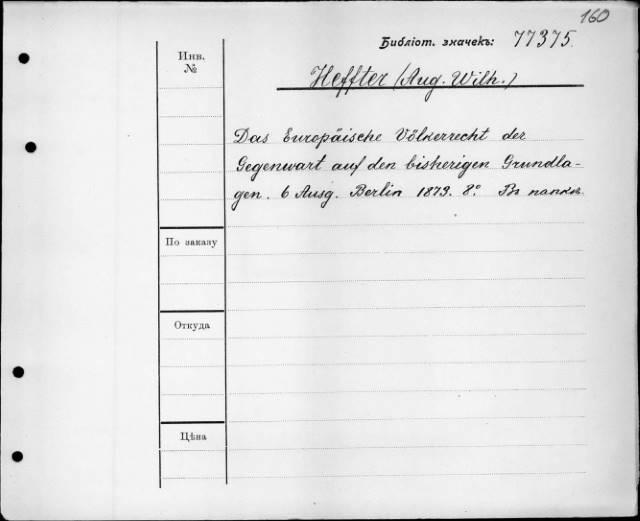 160
Библіот. значекъ: 77375.
Инв.
№
Heffter (Aug. Wilh.)
Das Europäische Völkerrecht der
Gegenwart auf den bisherigen Grundla-
gen. 6 Ausg. Berlin 1873. 8°. Въ папкѣ.
По заказу
Откуда
Цѣна